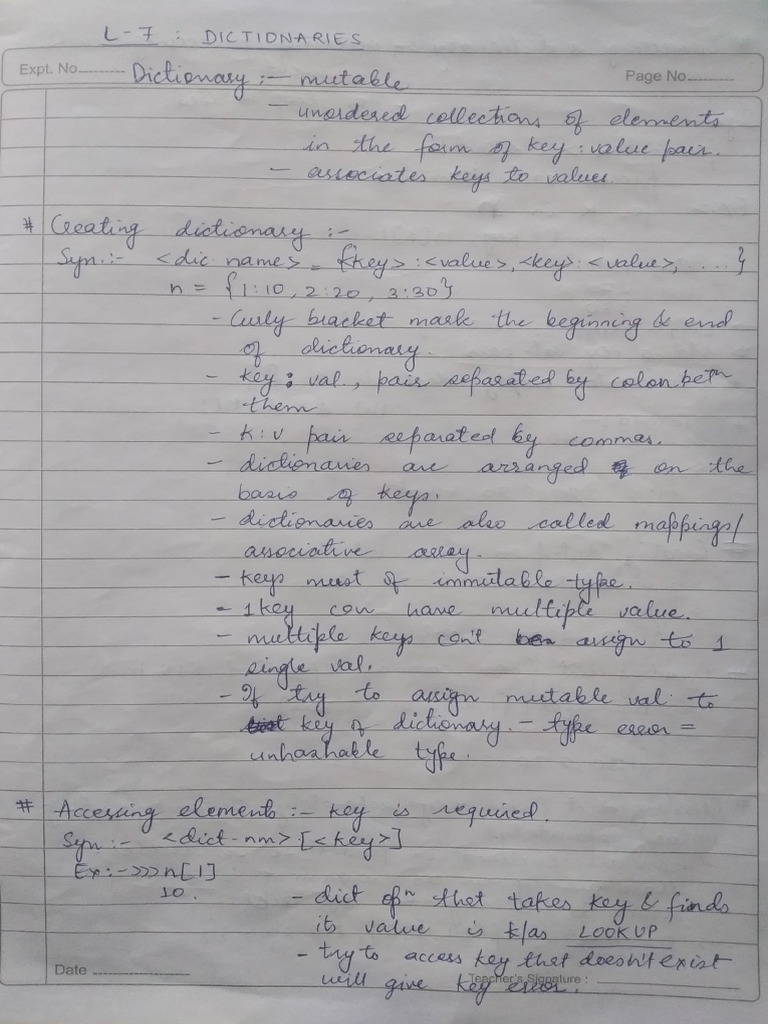 L-7 : DICTIONARIES
Expt. No.
Dictionary :- mutable
Page No.
- unordered collections of elements
in the form of key : value pair.
- associates keys to values
# Creating dictionary :-
Syn. :- <dic name> = {<key> : <value>, <key> : <value>, ....}
n = {1:10, 2:20, 3:30}
- Curly bracket mark the beginning & end
of dictionary.
- key : val, pair separated by colon betn
them
- k : v pair separated by commas.
- dictionaries are arranged on the
basis of keys.
- dictionaries are also called mappings/
associative array.
- keys must of immutable type.
- 1 key can have multiple value.
- multiple keys can't assign to 1
single val.
- If try to assign mutable val to
key of dictionary. - type error =
unhashable type.
# Accessing elements :- key is required.
Syn :- <dict-nm> [<key>]
Ex :- >>> n[1]
10.
- dict opn that takes key & finds
its value is k/as LOOKUP
- try to access key that doesn't exist
will give key error.
Date
Teacher's Signature :